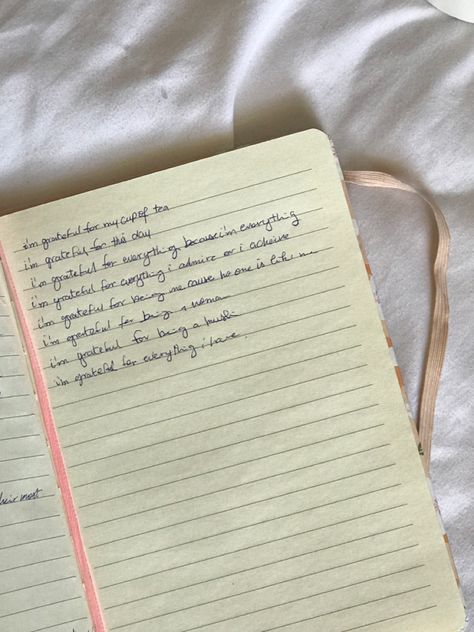 i'm grateful for my cup of tea
i'm grateful for this day
i'm grateful for everything because i'm everything
i'm grateful for everything i admire or i acheive
i'm grateful for being me cause no one is like me
i'm grateful for being a woman
i'm grateful for being a
i'm grateful for everything i have.
their most